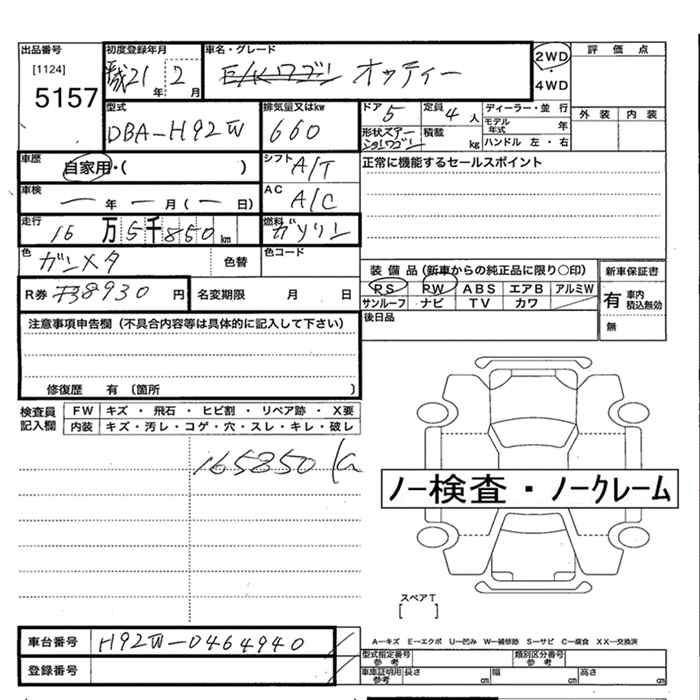 出品番号 初度登録年月 車名・グレード 2WD 評価点
[1124] 平成21年 2月 E/Kワゴン オッティー ・
5157 4WD
型式 排気量又はkw ドア 5 定員 4人 ディーラー・並行 外装 内装
DBA-H92W 660 モデル年式 年
形状 ステーションワゴン 積載 kg ハンドル 左・右
車歴 自家用・( ) シフト A/T 正常に機能するセールスポイント
車検 ー年ー月(ー日) AC A/C
走行 16万5千850km 燃料 ガソリン
色 ガンメタ 色替 色コード
装備品(新車からの純正品に限り○印) 新車保証書
R券 8930円 名変期限 月 日 PS PW ABS エアB アルミW 有 車内 積込無効
サンルーフ ナビ TV カワ 無
注意事項申告欄(不具合内容等は具体的に記入して下さい) 後日品
修復歴 有 〔箇所 〕
検査員記入欄 FW キズ・飛石・ヒビ割・リペア跡・X要
内装 キズ・汚レ・コゲ・穴・スレ・キレ・破レ
165850
ノー検査・ノークレーム
スペアT
[ ]
車台番号 H92W-0464940 A-キズ E-エクボ U-凹み W-補修跡 S-サビ C-腐食 XX-交換済
登録番号 型式指定番号 参考 類別区分番号 参考
車庫証明用 参考 長さ cm 幅 cm 高さ cm